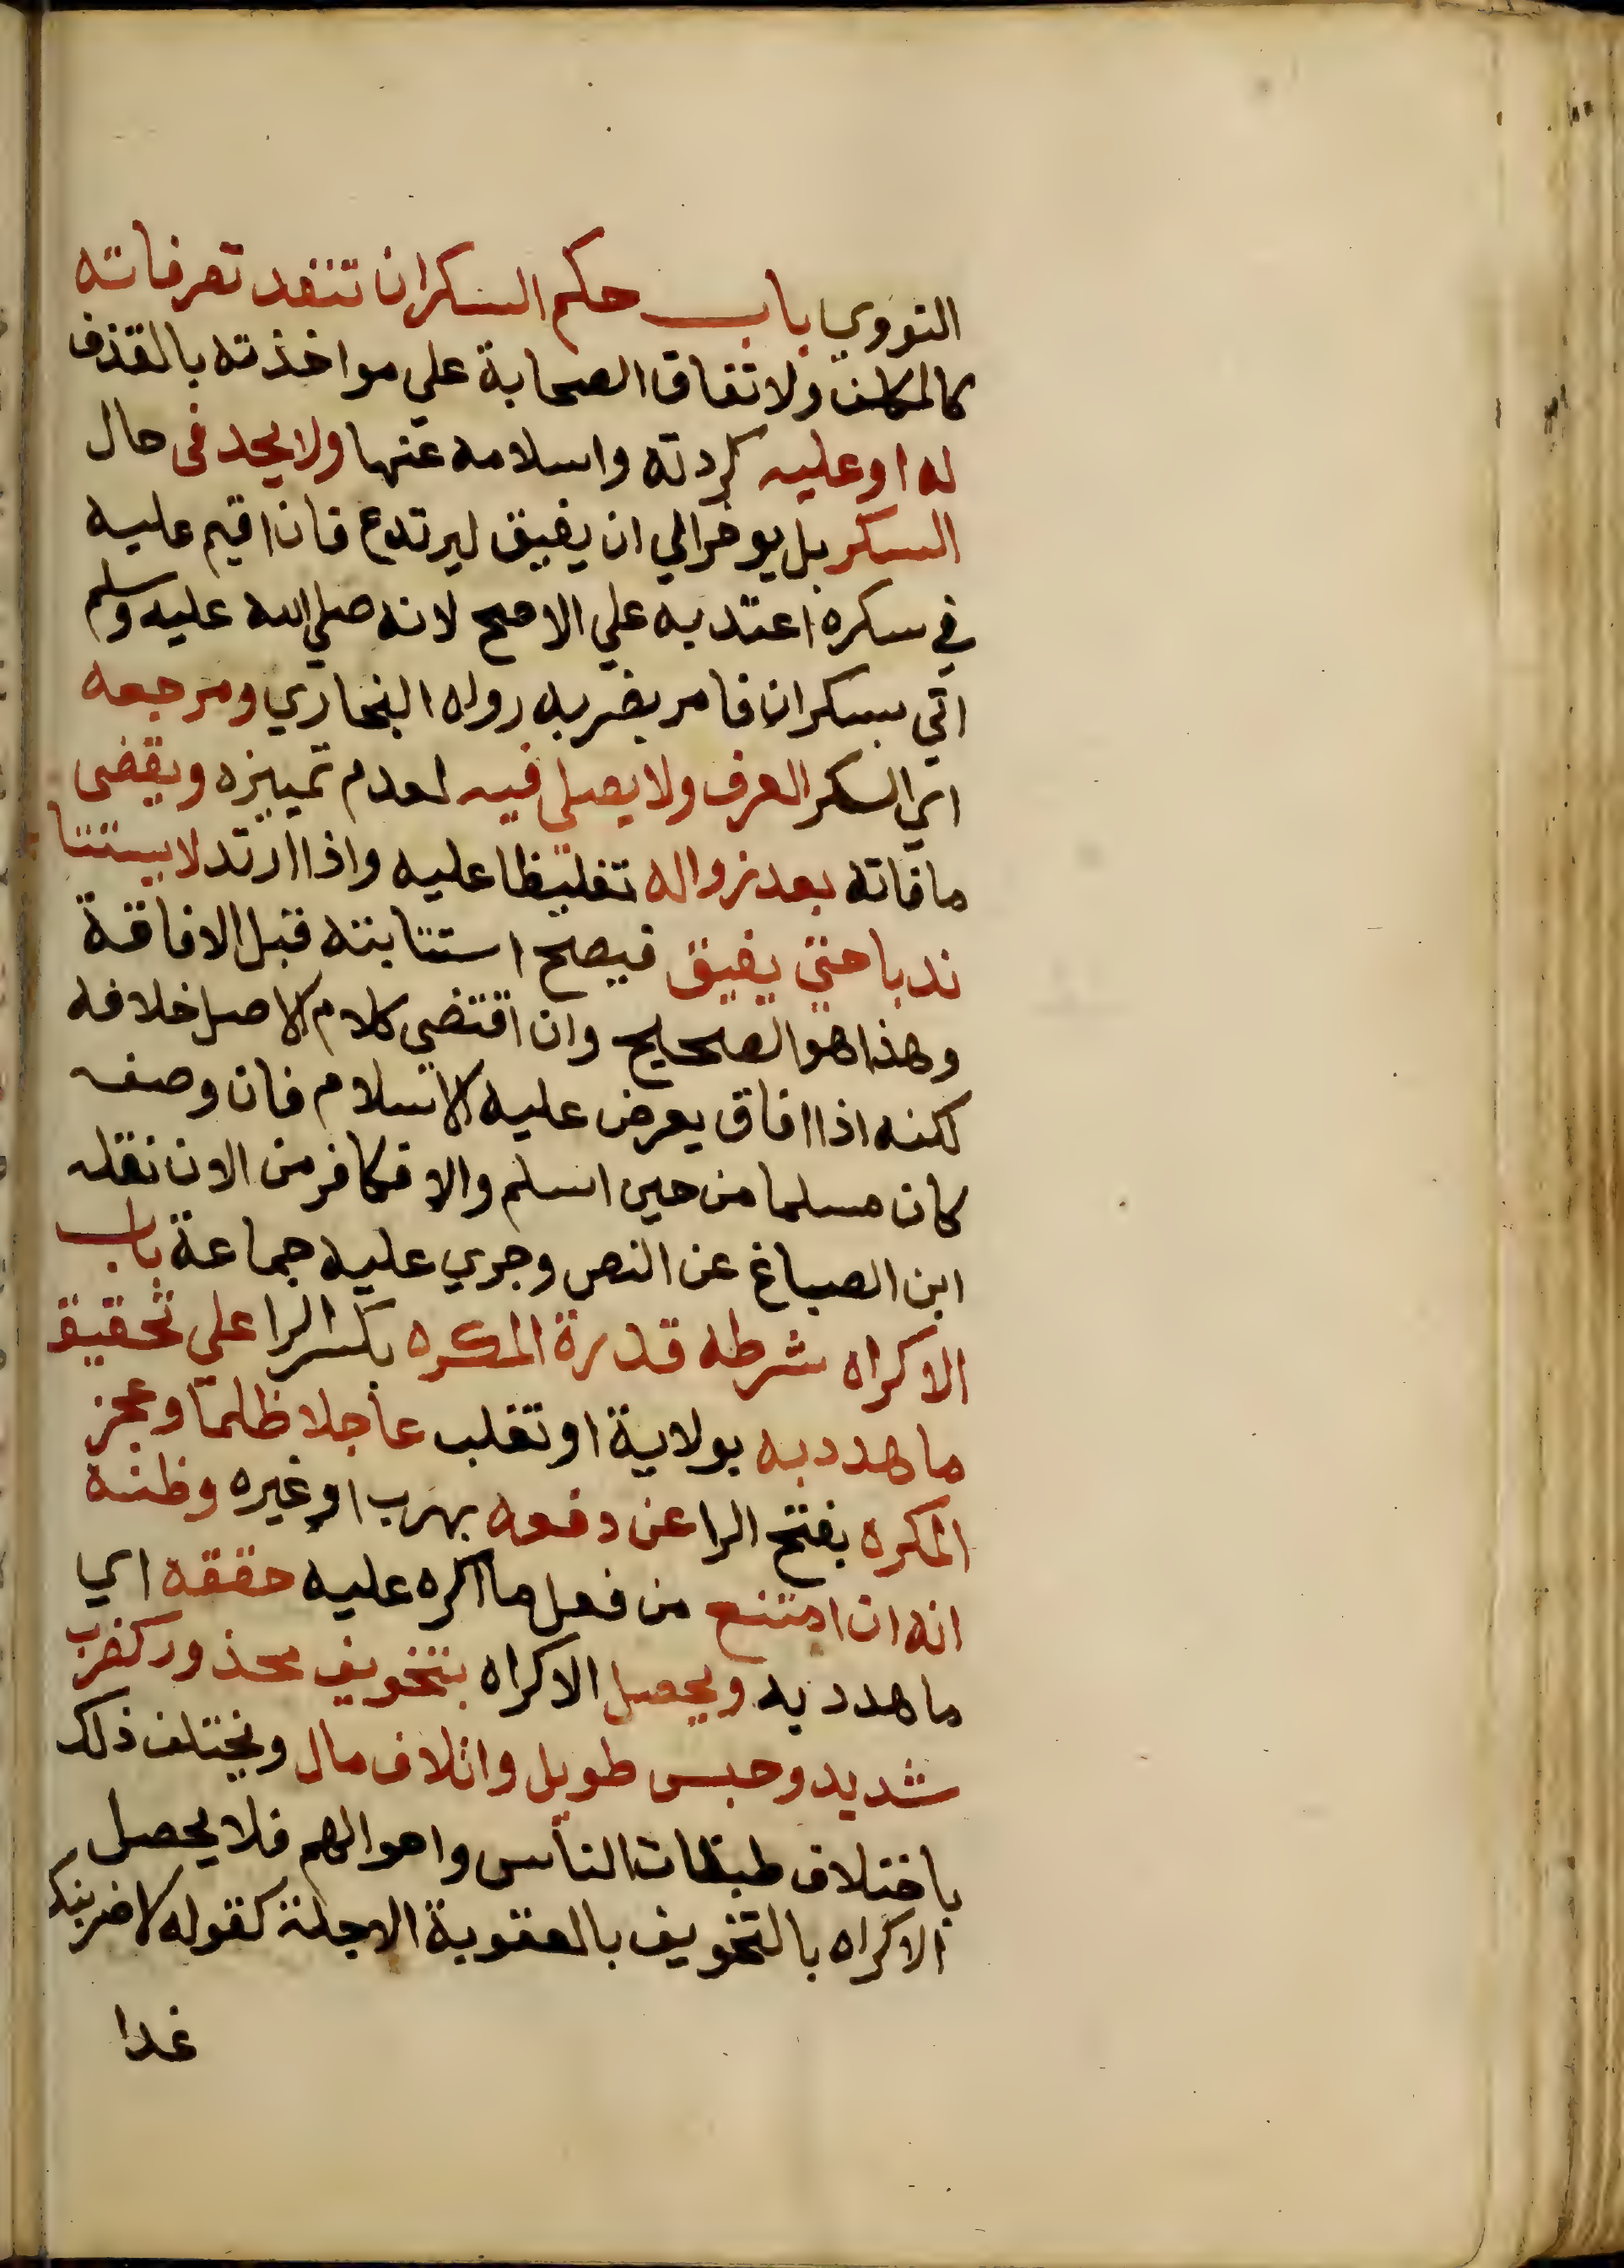 النووي باب حكم السكران تنفد تصرفاته
كالمكلف ولاتفاق الصحابة علي مواخذته بالقذف
له او عليه كردته واسلامه عنها ولا يحد في حال
السكر بل يوخر الي ان يفيق ليرتدع فان اقيم عليه
في سكره اعتد به علي الاصح لانه صلي الله عليه وسلم
اتي بسكران فامر بضربه رواه البخاري ومرجعه
اي السكر العرف ولا يصلي فيه لعدم تمييزه ويقضى
ما فاته بعد زواله تغليظا عليه واذا ارتد لا يستتا
ندبا حتي يفيق فيصح استتابته قبل الافاقة
وهذا هو الصحيح وان اقتضي كلام الاصل خلافه
لكنه اذا افاق يعرض عليه الاسلام فان وصفه
كان مسلما من حين اسلم والا فكافر من الان نقله
ابن الصباغ عن النص وجري عليه جماعة باب
الاكراه شرطه قدرة المكره بكسر الرا علي تحقيق
ما هدد به بولاية او تغلب عاجلا ظلما وعجز
المكره بفتح الرا عن دفعه بهرب او غيره وظنه
انه ان امتنع من فعل ما اكره عليه حققه اي
ما هدد به ويحصل الاكراه بتخويف محذور كضرب
شديد وحبس طويل واتلاف مال ويختلف ذلك
باختلاف طبقات الناس واحوالهم فلا يحصل
الاكراه بالتخويف بالعقوبة الاجلة كقوله لاضربنك
غدا